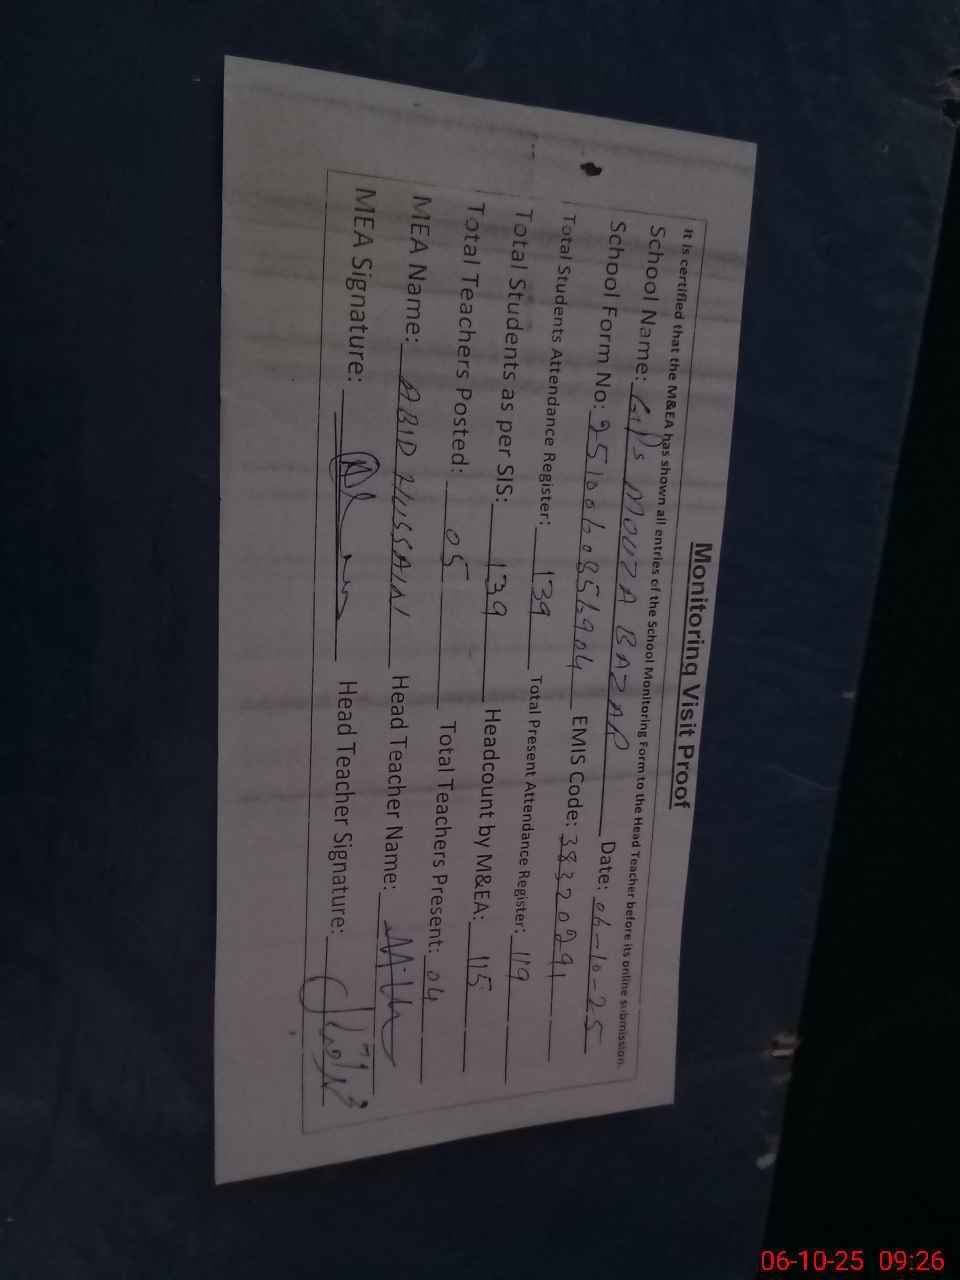 Monitoring Visit Proof
It is certified that the M&EA has shown all entries of the School Monitoring Form to the Head Teacher before its online submission.
School Name: GPS MOUZA BAZAR Date: 06-10-25
School Form No: EMIS Code: 38320291
Total Students Attendance Register: 139 Total Present Attendance Register: 119
Total Students as per SIS: 139 Headcount by M&EA: 115
Total Teachers Posted: 05 Total Teachers Present: 04
MEA Name: ABID HUSSAIN Head Teacher Name:
MEA Signature: Head Teacher Signature:
06-10-25 09:26